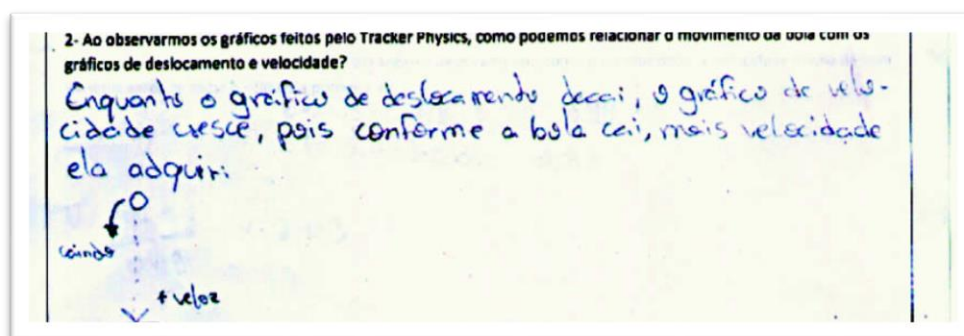 2- Ao observarmos os gráficos feitos pelo Tracker Physics, como podemos relacionar o movimento da bola com os
gráficos de deslocamento e velocidade?
Enquanto o gráfico de deslocamento decai, o gráfico de velo-
cidade cresce, pois conforme a bola cai, mais velocidade
ela adquiri
caindo
+ veloz